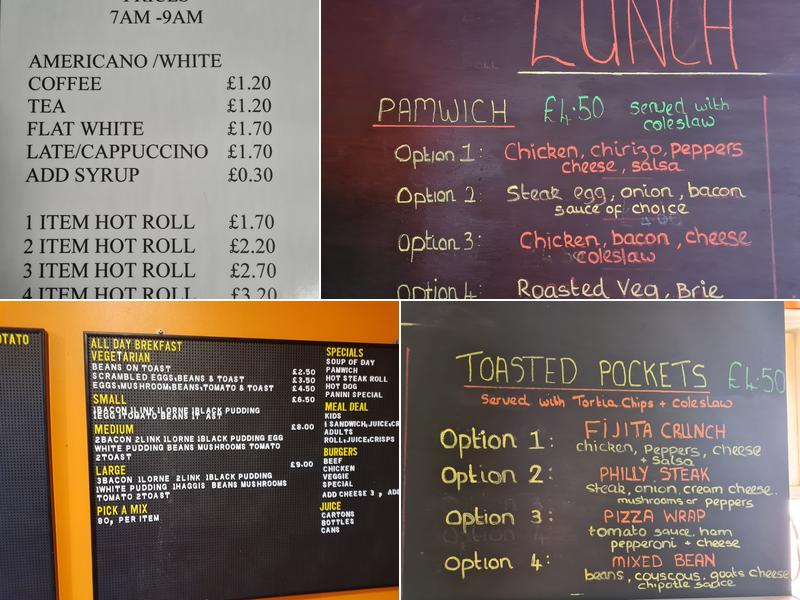 PRICES
7AM -9AM
AMERICANO /WHITE
COFFEE £1.20
TEA £1.20
FLAT WHITE £1.70
LATE/CAPPUCCINO £1.70
ADD SYRUP £0.30
1 ITEM HOT ROLL £1.70
2 ITEM HOT ROLL £2.20
3 ITEM HOT ROLL £2.70
4 ITEM HOT ROLL £3.20
LUNCH
PAMWICH £4.50 served with
coleslaw
Option 1: Chicken, chirizo, peppers
cheese, salsa
Option 2: Steak egg, onion, bacon
sauce of choice
Option 3: Chicken, bacon, cheese
coleslaw
Option 4: Roasted Veg, Brie
OTATO
ALL DAY BREKFAST
VEGETARIAN
BEANS ON TOAST £2.50
SCRAMBLED EGGS,BEANS & TOAST £3.50
EGGS,MUSHROOM,BEANS,TOMATO & TOAST £4.50
SMALL £6.50
1BACON 1LINK 1LORNE 1BLACK PUDDING
1EGG 1TOMATO BEANS 1T AST
MEDIUM £8.00
2BACON 2LINK 1LORNE 1BLACK PUDDING EGG
WHITE PUDDING BEANS MUSHROOMS TOMATO
2TOAST
LARGE £9.00
3BACON 1LORNE 2LINK 1BLACK PUDDING
1WHITE PUDDING 1HAGGIS BEANS MUSHROOMS
TOMATO 2TOAST
PICK A MIX
80p PER ITEM
SPECIALS
SOUP OF DAY
PAMWICH
HOT STEAK ROLL
HOT DOG
PANINI SPECIAL
MEAL DEAL
KIDS
1 SANDWICH,JUICE,CR
ADULTS
ROLL,JUICE,CRISPS
BURGERS
BEEF
CHICKEN
VEGGIE
SPECIAL
ADD CHEESE 3 , ADD
JUICE
CARTONS
BOTTLES
CANS
TOASTED POCKETS £4.50
Served with Tortia Chips + coleslaw
Option 1: FIJITA CRUNCH
chicken, peppers, cheese
+ salsa
Option 2: PHILLY STEAK
steak, onion, cream cheese.
mushrooms or peppers
Option 3: PIZZA WRAP
tomato sauce, ham
pepperoni + cheese
Option 4: MIXED BEAN
beans, couscous, goats cheese
chipotle sauce